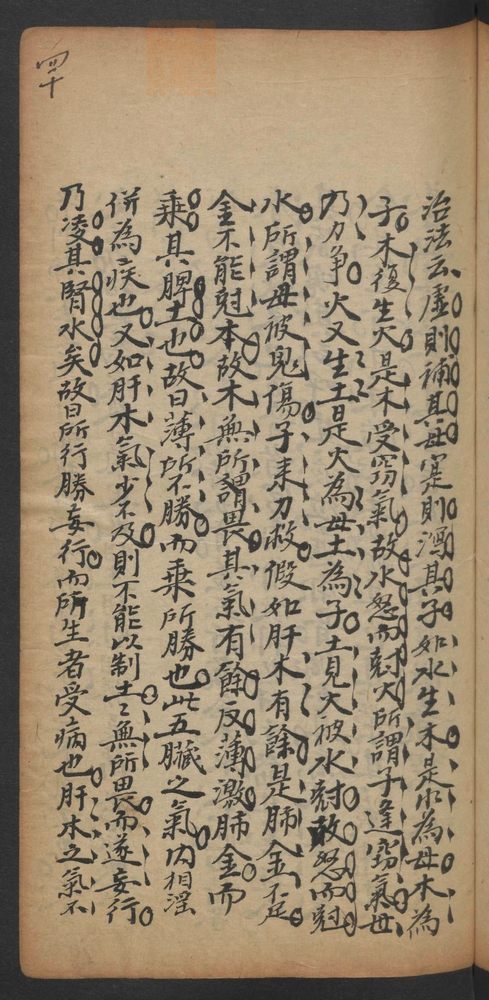 四十
治法云虛則補其母寔則瀉其子如水生木是水為母木為
子木復生火是木受窃氣故水怒而尅火所謂子逢窃氣母
乃力争火又生土是火為母土為子土見火被水尅故怒而尅
水所謂母被鬼傷子来力救假如肝木有餘是肺金不足
金不能尅木故木無所謂畏其氣有餘反薄激肺金而
乘其脾土也故曰薄所不勝而乘所勝也此五臟之氣内相淫
併為疾也又如肝木氣少不及則不能以制土土無所畏而遂妄行
乃凌其腎水矣故曰所行勝妄行而所生者受病也肝木之氣不